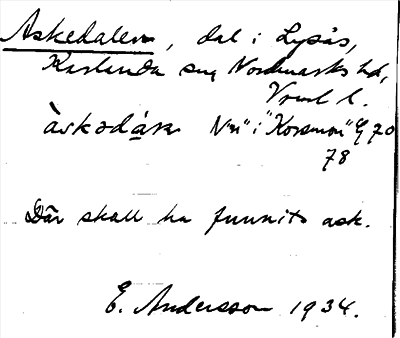 Askedalen, dal i Lysås,
Karlanda sn, Nordmarks hd,
Vrml l.
N:n i "Korsmon" G 70
78
Där skall ha funnits ask.
E. Andersson 1934.